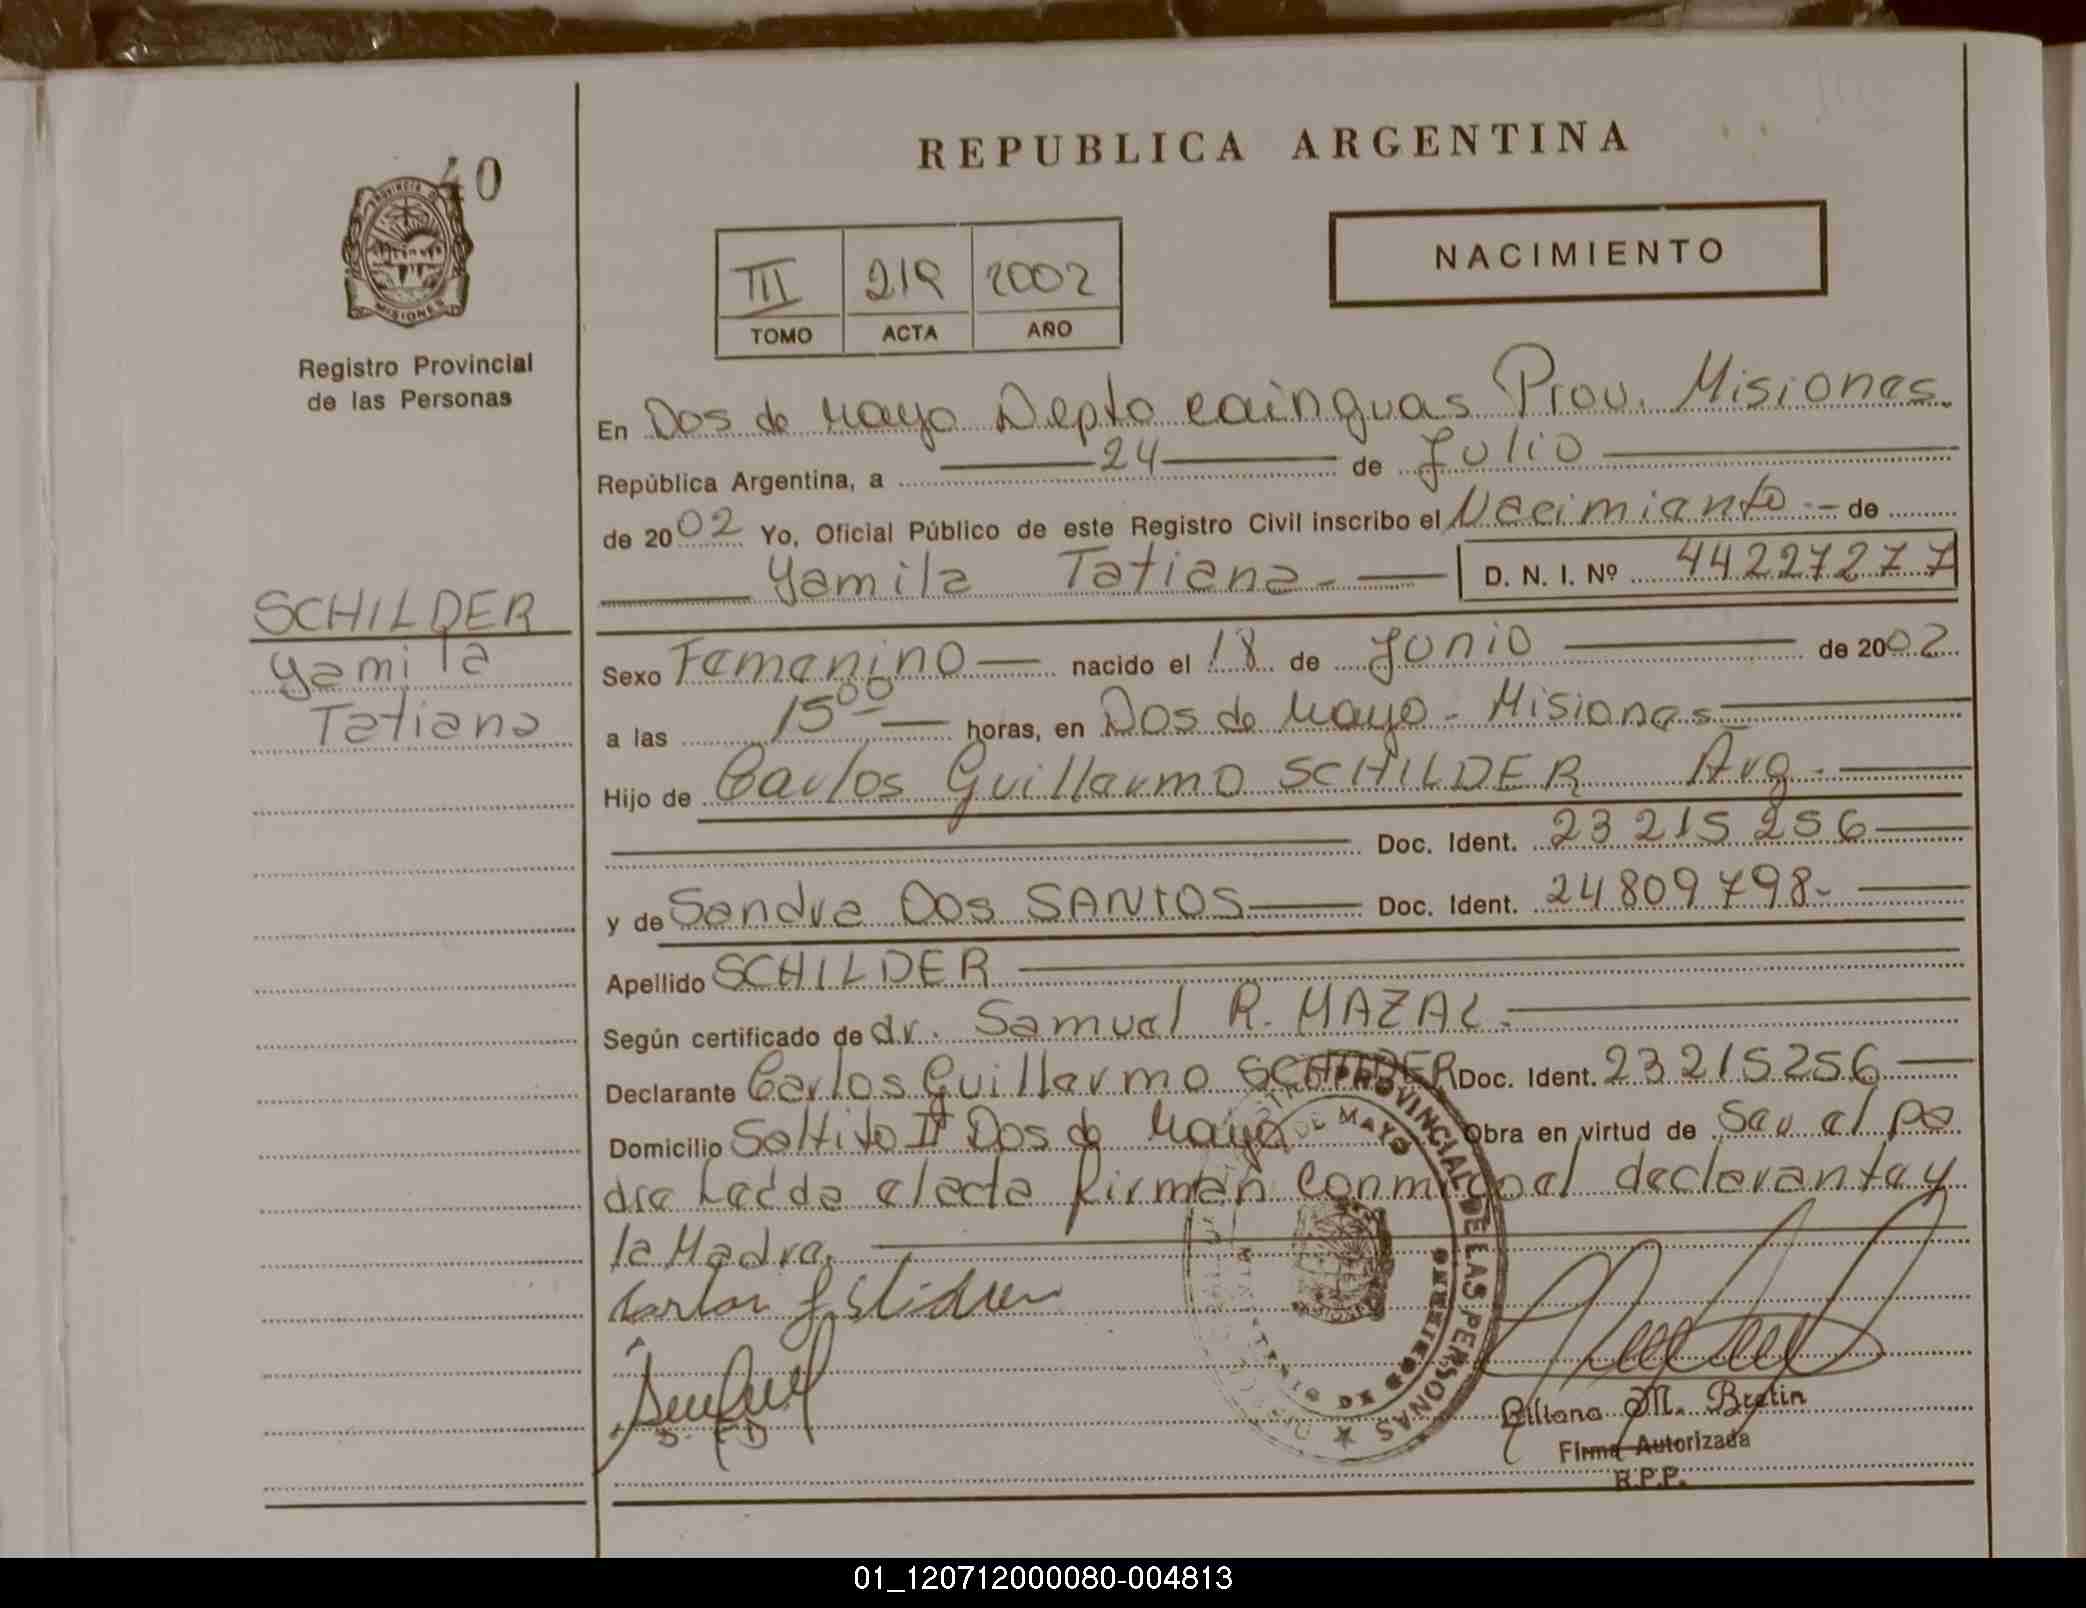 40
REPUBLICA ARGENTINA
NACIMIENTO
III 219 2002
TOMO ACTA AÑO
PROVINCIA DE
MISIONES
Registro Provincial
de las Personas
En Dos de Mayo Depto cainguas Prov. Misiones.
República Argentina, a 24 de Julio
de 2002 Yo, Oficial Público de este Registro Civil inscribo el Nacimiento - de
Yamila Tatiana - D. N. I. Nº 44227277
SCHILDER
Yamila
Tatiana
Sexo Femenino nacido el 18 de Junio de 2002
a las 15⁰⁰ horas, en Dos de Mayo - Misiones
Hijo de Carlos Guillermo SCHILDER Arg.
Doc. Ident. 23 215 256
y de Sandra Dos SANTOS Doc. Ident. 24809798-
Apellido SCHILDER
Según certificado de dr. Samuel R. MAZAL.
Declarante Carlos Guillermo SCHILDER Doc. Ident. 23215256
Domicilio Saltito II Dos de Mayo Obra en virtud de Ser el pa
dre Leída el acta firman conmigo el declarante y
la Madre.
PROVINCIAL DE LAS PERSONAS
DE MAYO
Carlos G. Schilder
S. D
Liliana M. Bretin
Firma Autorizada
R.P.P.
01_120712000080-004813